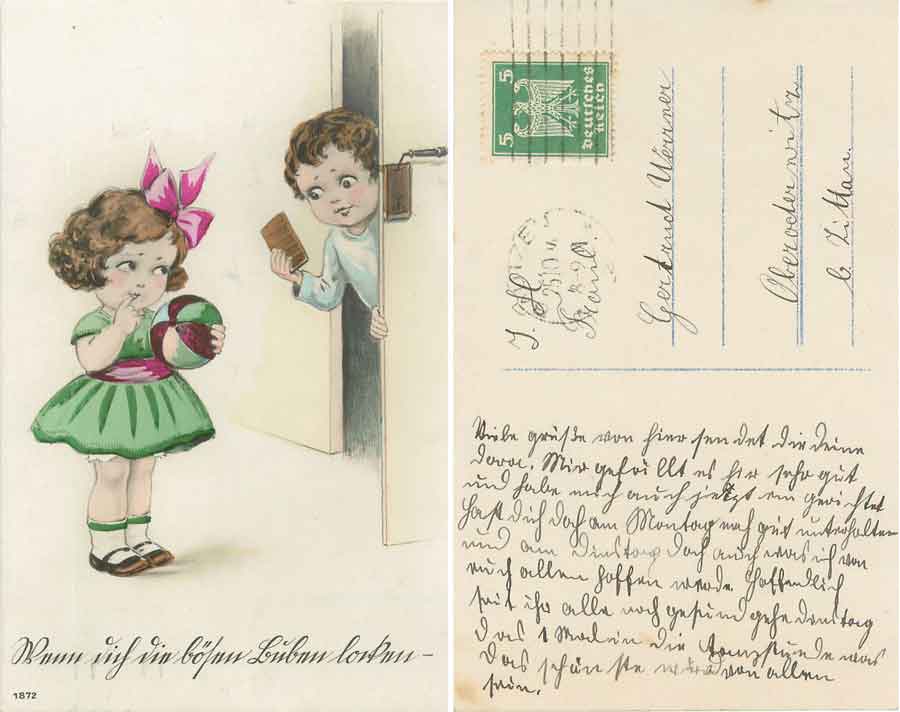 Wenn dich die bösen Buben locken –
1872
5 5
Deutsches
Reich
Gertrud Werner
Oberoderwitz
b Zittau.
Viele grüße von hier sendet dir deine
Dora. Mir gefällt es hir sehr gut
und habe mich auch jetzt ein gerichtet
Hast dich doch am Montag noch gut unterhalten
und am Dinstag doch auch was ich von
euch allen hoffen werde. Hoffendlich
seit ihr alle noch gesund gehe Dinstag
das 1 Mal in die Tanzstunde was
das schönste wird von allen
sein.